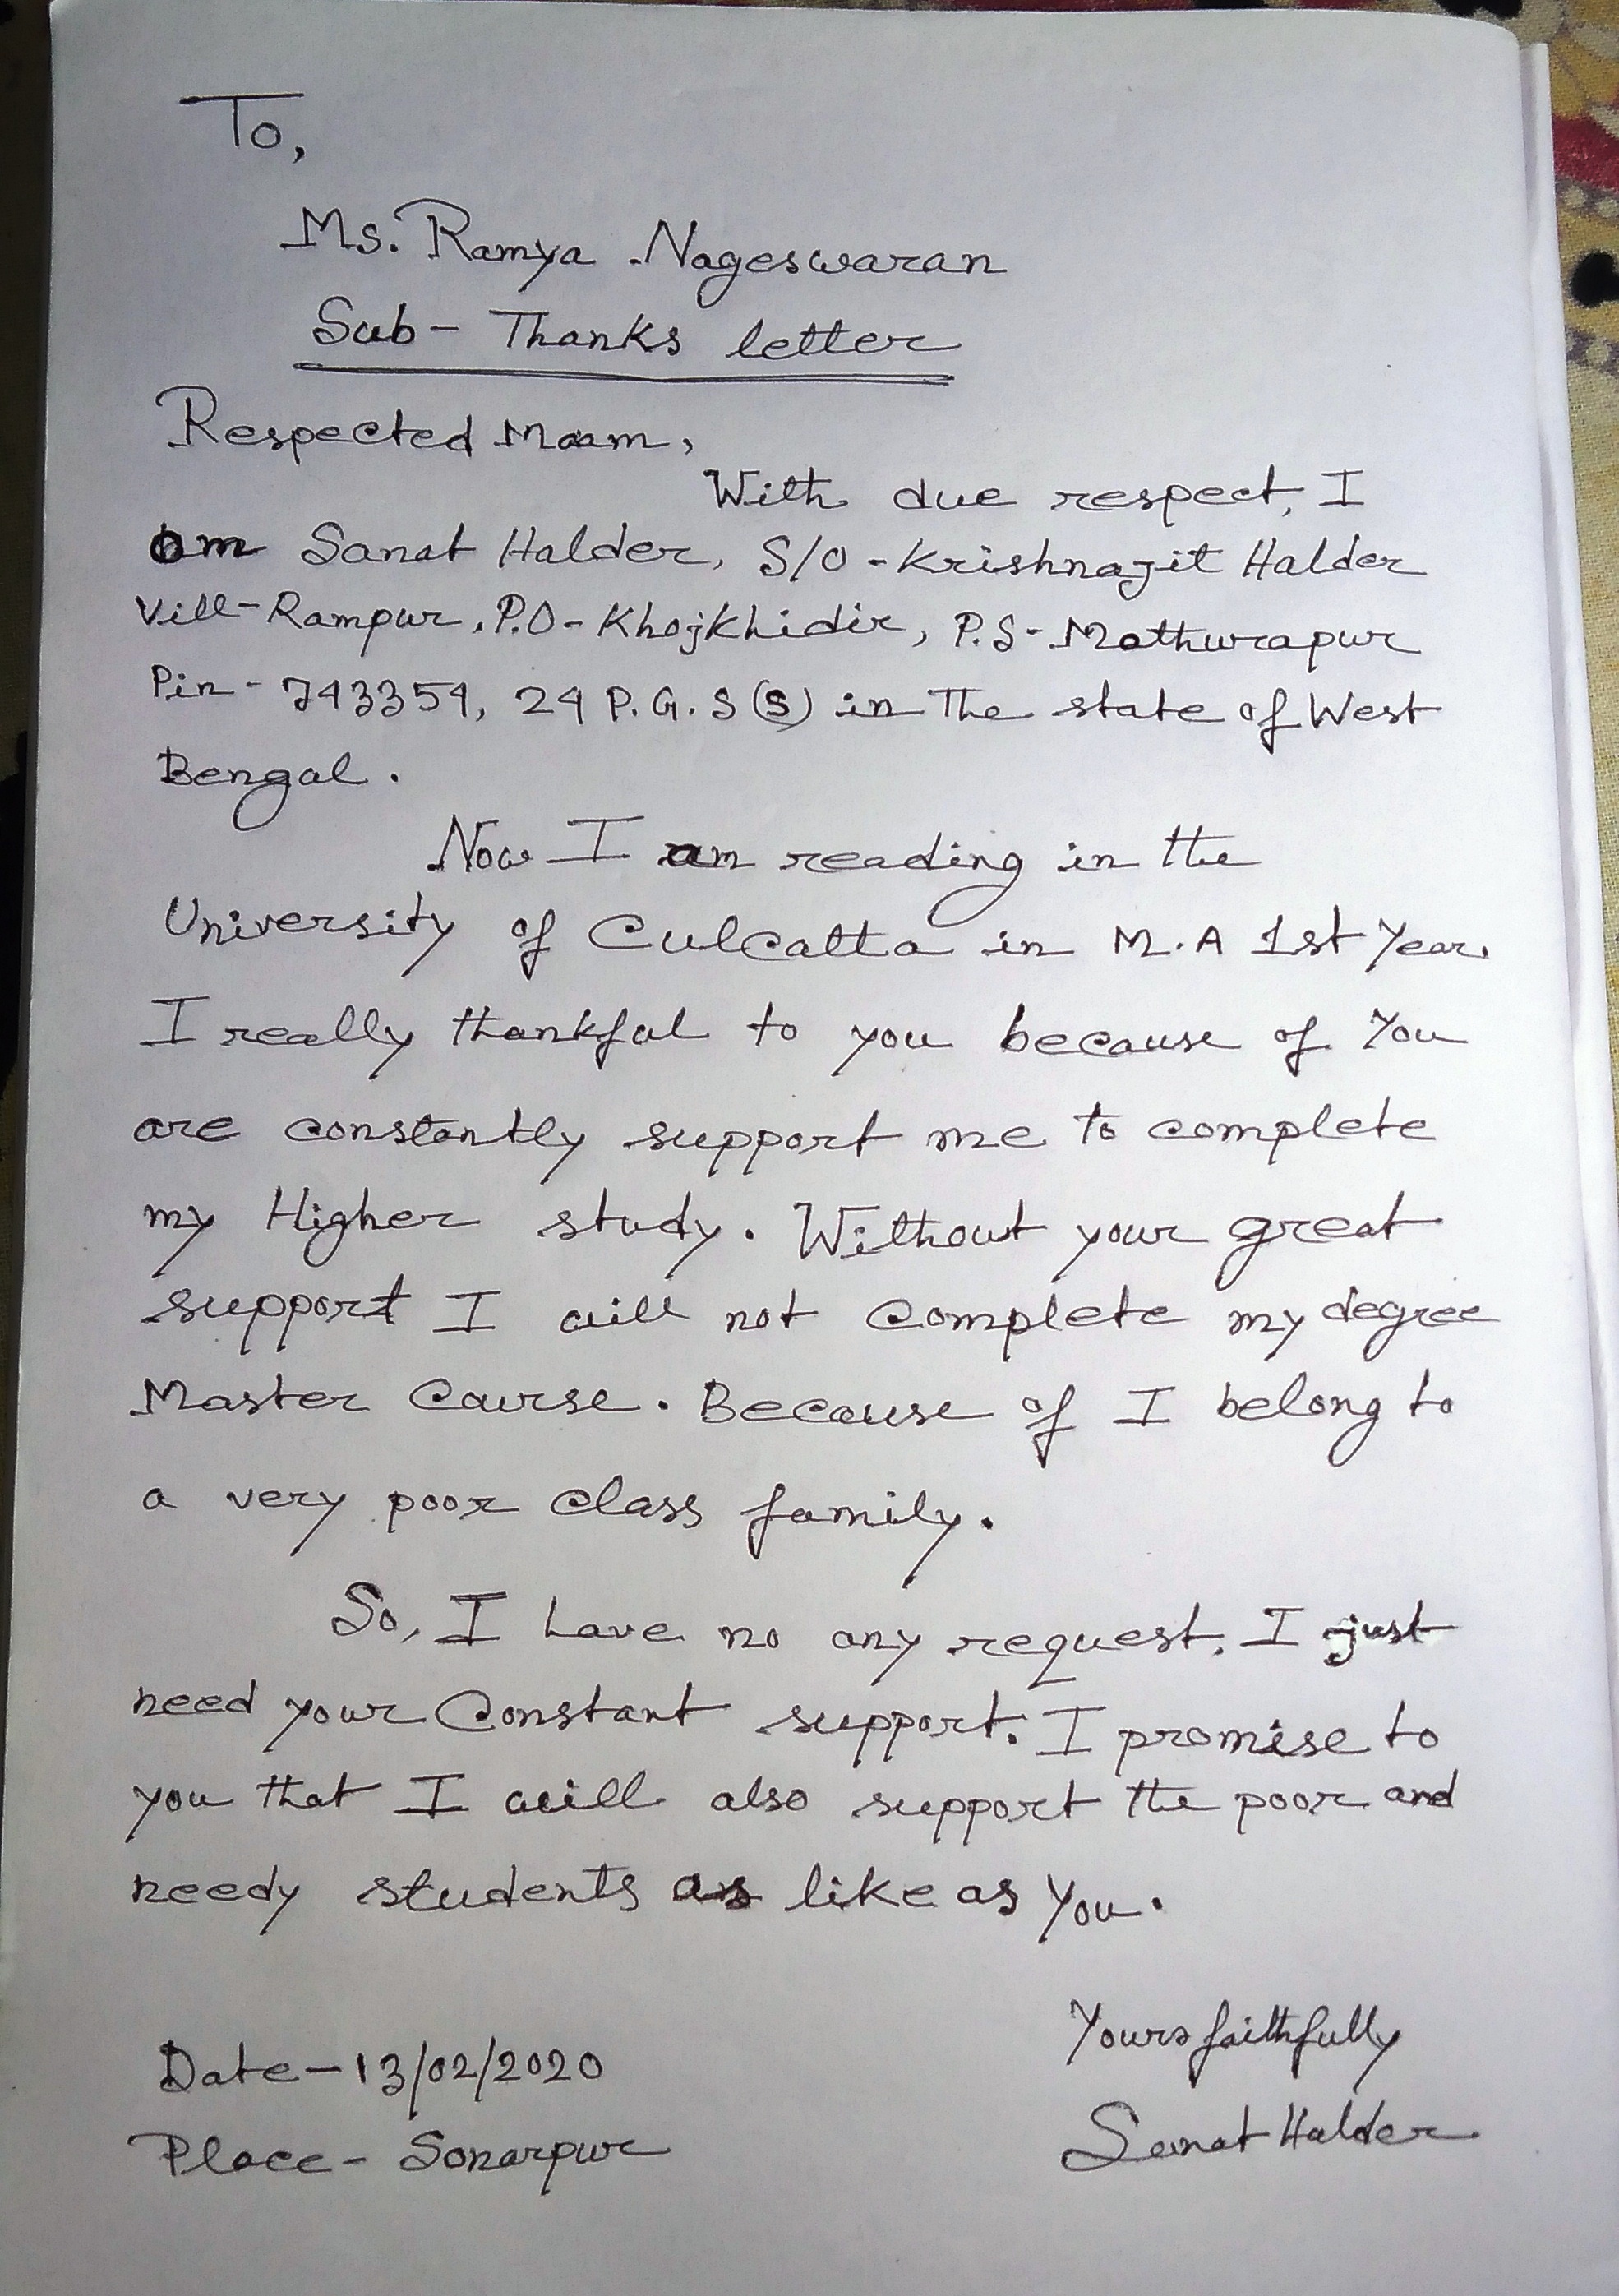 To,
Ms. Ramya Nageswaran
Sub- Thanks letter
Respected Maam,
With due respect, I
am Sanat Halder, S/O - Krishnajit Halder
Vill-Rampur, P.O- Khojkhidir, P.S- Mathurapur
Pin - 743354, 24 P.G.S (S) in The state of West
Bengal.
Now I am reading in the
University of Culcatta in M.A 1st Year.
I really thankful to you because of You
are constantly support me to complete
my Higher study. Without your great
support I will not complete my degree
Master Course. Because of I belong to
a very poor class family.
So, I have no any request. I just
need your Constant support. I promise to
you that I will also support the poor and
needy students as like as You.
Yours faithfully
Date-13/02/2020
Sanat Halder
Place- Sonarpur